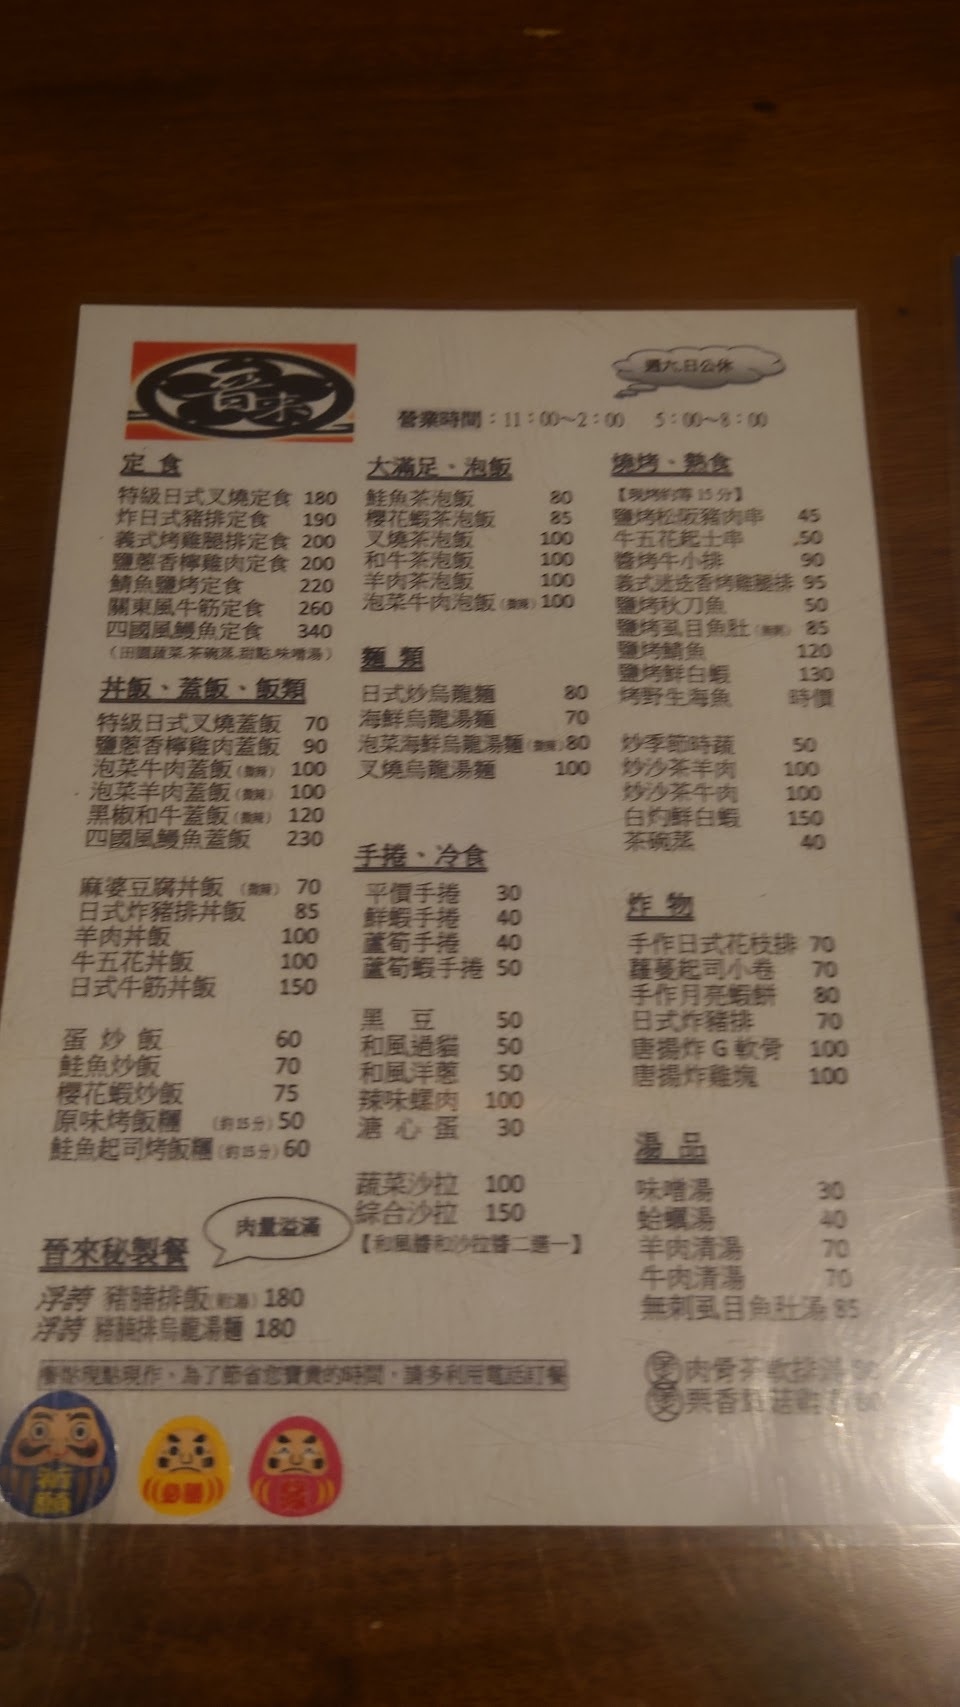 週六.日公休
營業時間：11：00～2：00　5：00～8：00
定 食
特級日式叉燒定食 180
炸日式豬排定食 190
義式烤雞腿排定食 200
鹽蔥香檸雞肉定食 200
鯖魚鹽烤定食 220
關東風牛筋定食 260
四國風鰻魚定食 340
（田園蔬菜.茶碗蒸.甜點.味噌湯）
丼飯、蓋飯、飯類
特級日式叉燒蓋飯 70
鹽蔥香檸雞肉蓋飯 90
泡菜牛肉蓋飯（微辣） 100
泡菜羊肉蓋飯（微辣） 100
黑椒和牛蓋飯（微辣） 120
四國風鰻魚蓋飯 230
麻婆豆腐丼飯 （微辣） 70
日式炸豬排丼飯 85
羊肉丼飯 100
牛五花丼飯 100
日式牛筋丼飯 150
蛋 炒 飯 60
鮭魚炒飯 70
櫻花蝦炒飯 75
原味烤飯糰 （約15分）50
鮭魚起司烤飯糰（約15分）60
肉量溢滿
晉來秘製餐
浮誇 豬腩排飯（附湯）180
浮誇 豬腩排烏龍湯麵 180
大滿足、泡飯
鮭魚茶泡飯 80
櫻花蝦茶泡飯 85
叉燒茶泡飯 100
和牛茶泡飯 100
羊肉茶泡飯 100
泡菜牛肉泡飯（微辣）100
麵 類
日式炒烏龍麵 80
海鮮烏龍湯麵 70
泡菜海鮮烏龍湯麵（微辣）80
叉燒烏龍湯麵 100
手捲、冷食
平價手捲 30
鮮蝦手捲 40
蘆筍手捲 40
蘆筍蝦手捲 50
黑 豆 50
和風過貓 50
和風洋蔥 50
辣味螺肉 100
溏 心 蛋 30
蔬菜沙拉 100
綜合沙拉 150
【和風醬和沙拉醬二選一】
燒烤、熱食
【現烤約等15分】
鹽烤松阪豬肉串 45
牛五花起士串 50
醬烤牛小排 90
義式迷迭香烤雞腿排 95
鹽烤秋刀魚 50
鹽烤虱目魚肚 85
鹽烤鯖魚 120
鹽烤鮮白蝦 130
烤野生海魚 時價
炒季節時蔬 50
炒沙茶羊肉 100
炒沙茶牛肉 100
白灼鮮白蝦 150
茶碗蒸 40
炸 物
手作日式花枝排 70
蘿蔓起司小卷 70
手作月亮蝦餅 80
日式炸豬排 70
唐揚炸G軟骨 100
唐揚炸雞塊 100
湯 品
味噌湯 30
蛤蠣湯 40
羊肉清湯 70
牛肉清湯 70
無刺虱目魚肚湯 85
肉骨茶軟排湯
栗香菇
餐點現點現作，為了節省您寶貴的時間，請多利用電話訂餐
祈願
必勝